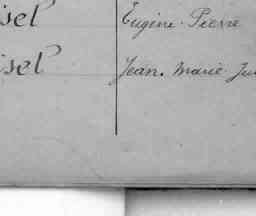 isel Eugène-Pierre
isel Jean-Marie-Ju